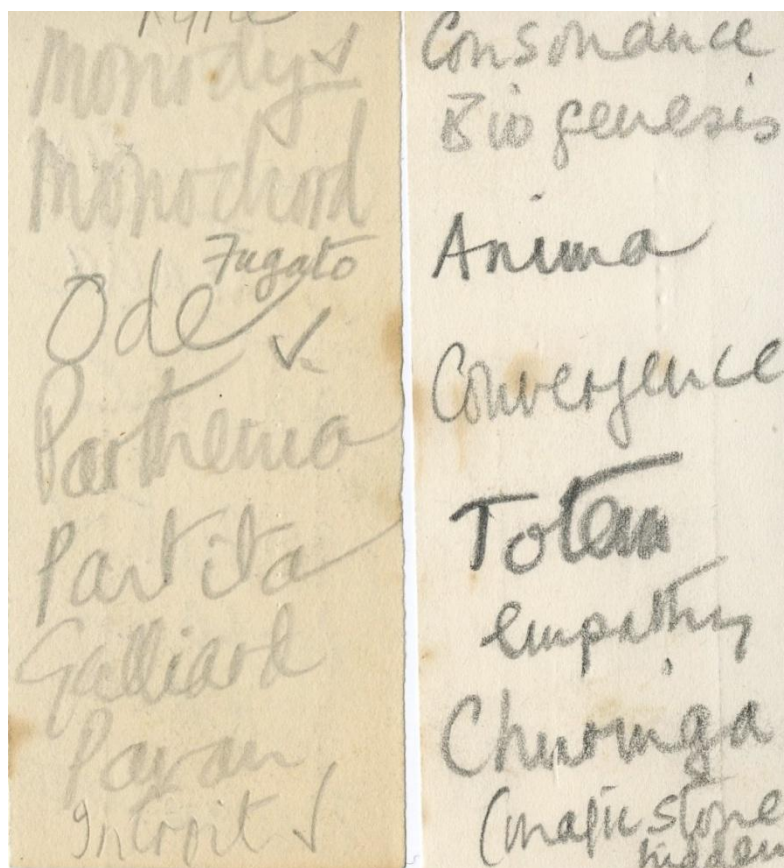 Kyrie
Monody ✓
Monochord
Fugato
Ode ✓
Parthenia
Partita
Galliard
Pavan
Introit ✓
Consonance
Biogenesis
Anima
Convergence
Totem
empathy
Churinga
(magic stone